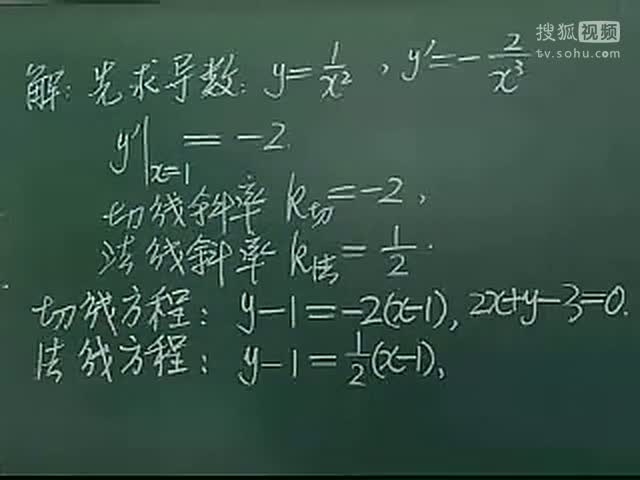 搜狐视频
tv.sohu.com
解: 先求导数: y=1/x², y′=-2/x³
y′|x=1 = -2.
切线斜率 k切=-2,
法线斜率 k法=1/2.
切线方程: y-1=-2(x-1), 2x+y-3=0.
法线方程: y-1=1/2(x-1),